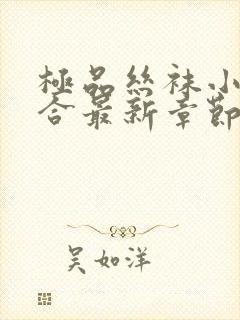 極品絲袜小
合最新章節
吴如洋